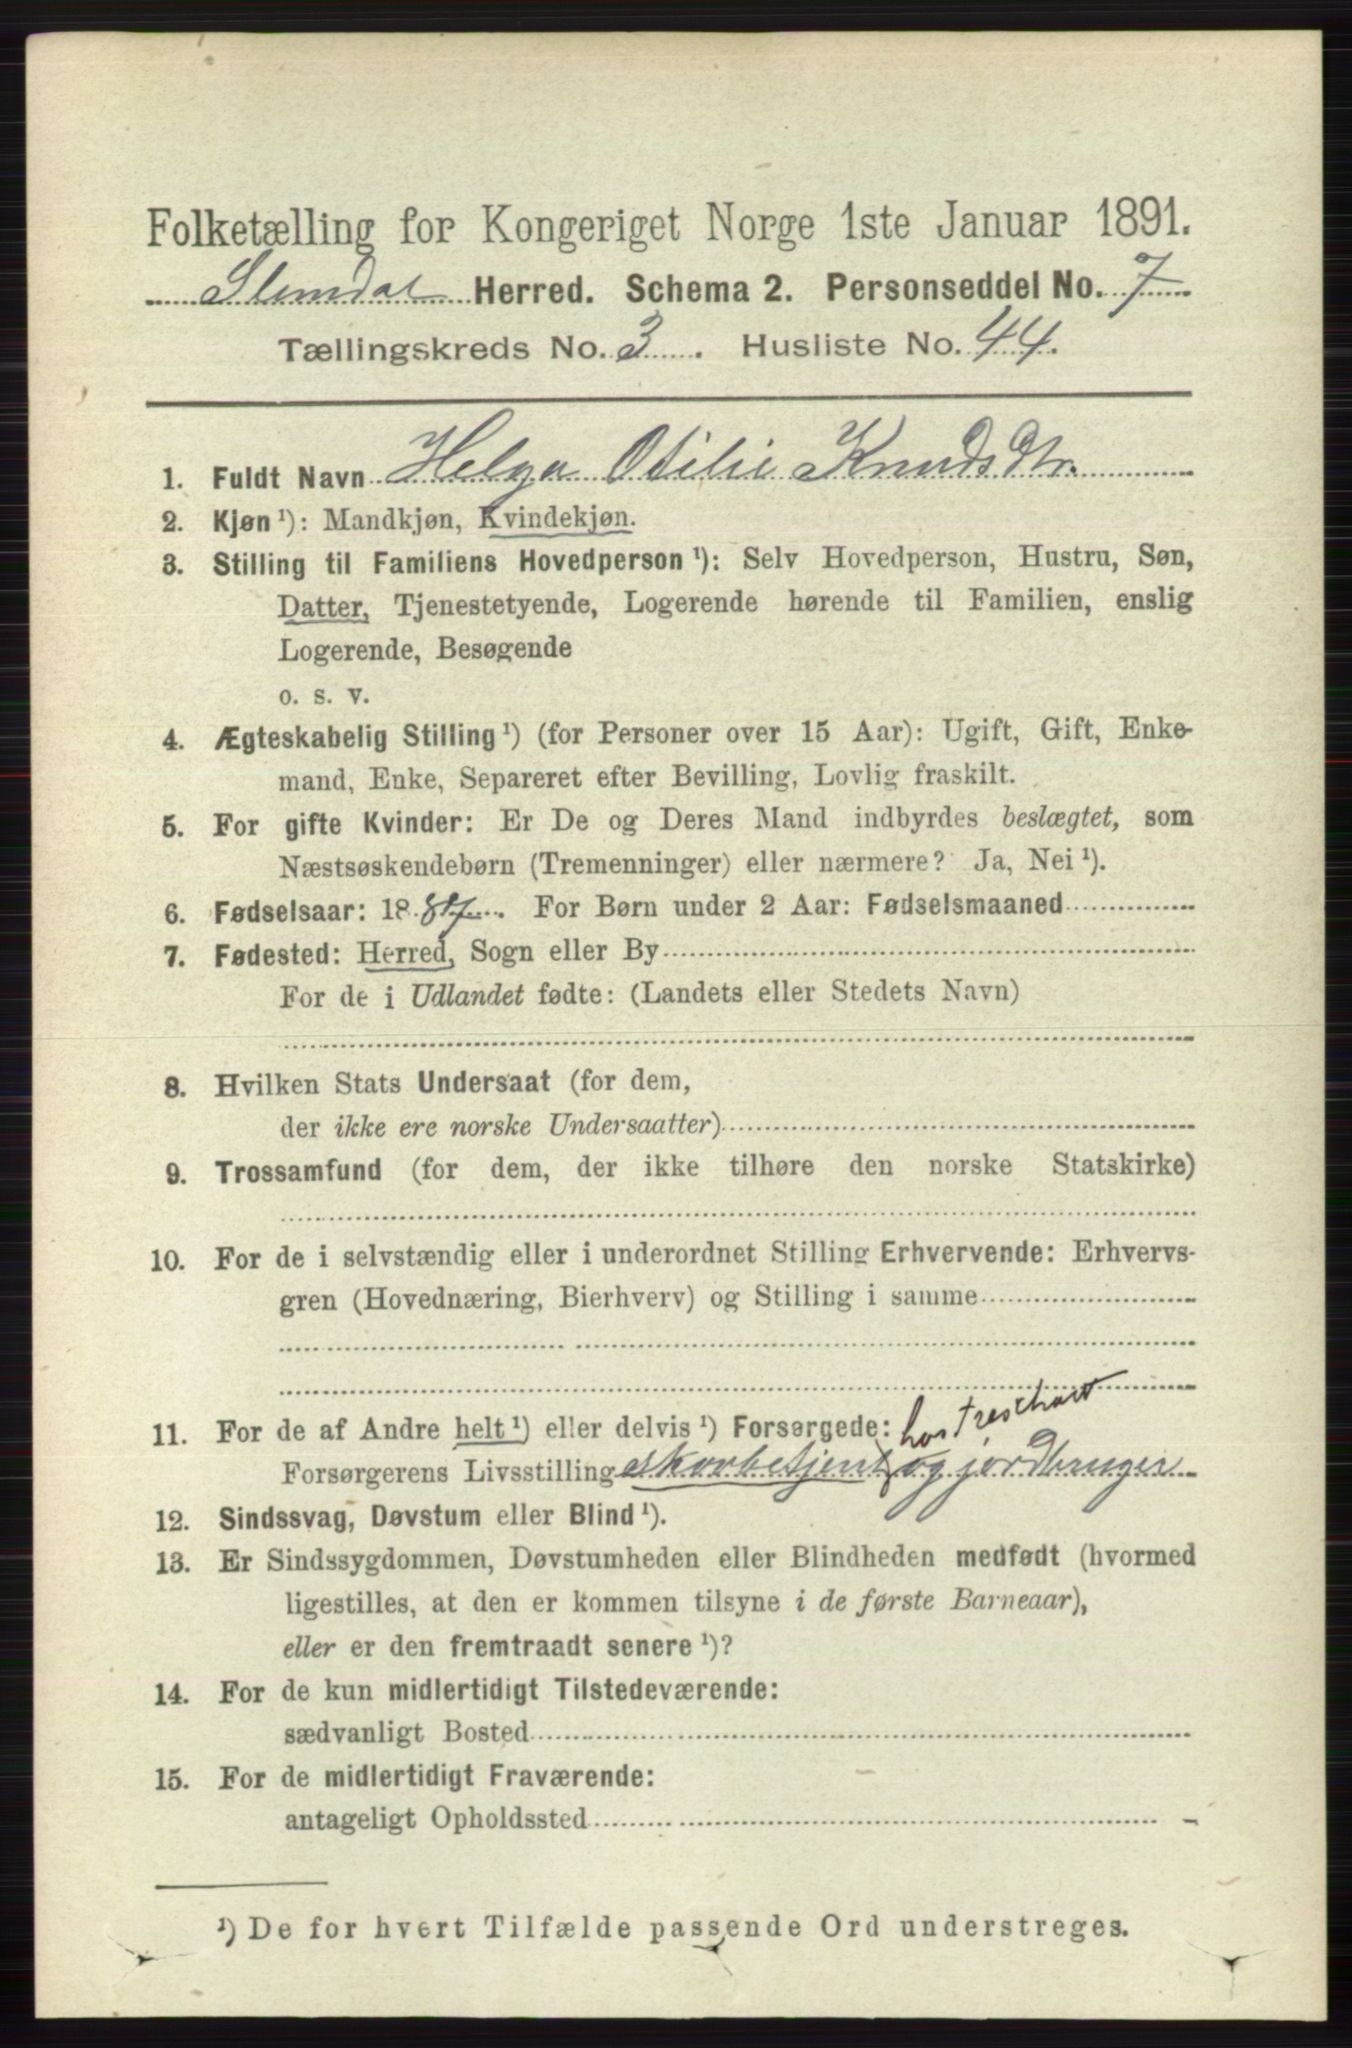 Folketælling for Kongeriget Norge 1ste Januar 1891.
Slemdal Herred. Schema 2. Personseddel No. 7
Tællingskreds No. 3. Husliste No. 44.
1. Fuldt Navn Helga Otilie Knudsdtr.
2. Kjøn ¹): Mandkjøn, Kvindekjøn.
3. Stilling til Familiens Hovedperson ¹): Selv Hovedperson, Hustru, Søn,
Datter, Tjenestetyende, Logerende hørende til Familien, enslig
Logerende, Besøgende
o. s. v.
4. Ægteskabelig Stilling ¹) (for Personer over 15 Aar): Ugift, Gift, Enke-
mand, Enke, Separeret efter Bevilling, Lovlig fraskilt.
5. For gifte Kvinder: Er De og Deres Mand indbyrdes beslægtet, som
Næstsøskendebørn (Tremenninger) eller nærmere? Ja, Nei ¹).
6. Fødselsaar: 1887. For Børn under 2 Aar: Fødselsmaaned
7. Fødested: Herred, Sogn eller By
For de i Udlandet fødte: (Landets eller Stedets Navn)
8. Hvilken Stats Undersaat (for dem,
der ikke ere norske Undersaatter)
9. Trossamfund (for dem, der ikke tilhøre den norske Statskirke)
10. For de i selvstændig eller i underordnet Stilling Erhvervende: Erhvervs-
gren (Hovednæring, Bierhverv) og Stilling i samme
11. For de af Andre helt ¹) eller delvis ¹) Forsørgede: hos Treschow
Forsørgerens Livsstilling skovbetjent og jordbruger
12. Sindssvag, Døvstum eller Blind ¹).
13. Er Sindssygdommen, Døvstumheden eller Blindheden medfødt (hvormed
ligestilles, at den er kommen tilsyne i de første Barneaar),
eller er den fremtraadt senere ¹)?
14. For de kun midlertidigt Tilstedeværende:
sædvanligt Bosted
15. For de midlertidigt Fraværende:
antageligt Opholdssted
¹) De for hvert Tilfælde passende Ord understreges.